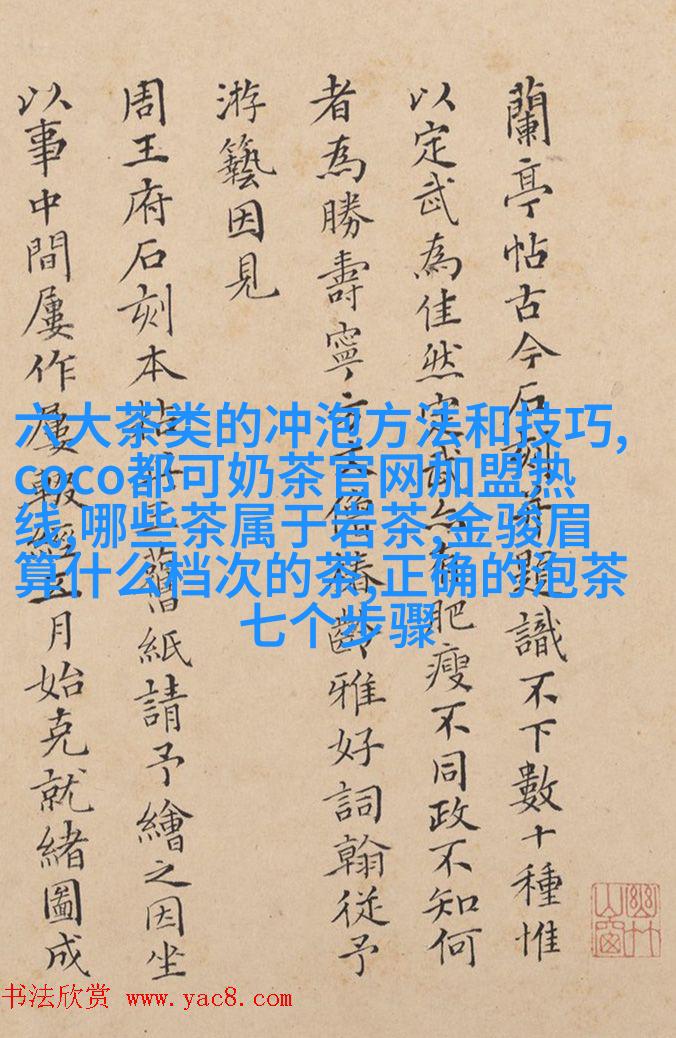 蘭亭帖古今石刻題識不下數十種惟
以定武為佳然定武有肥瘦不同政不知何
者為勝壽寧椿齡雅好詞翰從予
游藝因見
周王府石刻本舊紙請予繪之因坐
以事中間屢作屢輟經三月始克就緒圖成
六大茶类的冲泡方法和技巧,
coco都可奶茶官网加盟热
线,哪些茶属于岩茶,金骏眉
算什么档次的茶,正确的泡茶
七个步骤
幽竹山窗
书法欣赏 www.yac8.com